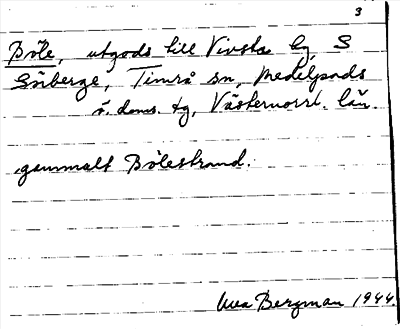 3
Böle, utgods till Vivsta by, S
Söråberge, Timrå sn, Medelpads
ö. doms. tg, Västernorrl. län.
gammalt Bölestrand.
Bergman 1944.